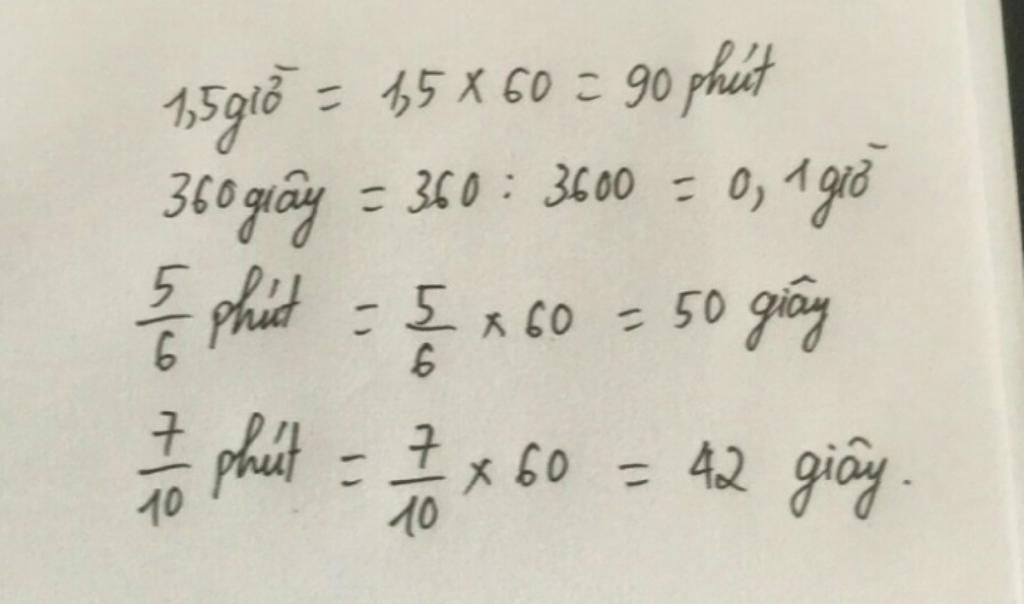 1,5 giờ = 1,5 × 60 = 90 phút
360 giây = 360 : 3600 = 0,1 giờ
5/6 phút = 5/6 × 60 = 50 giây
7/10 phút = 7/10 × 60 = 42 giây.